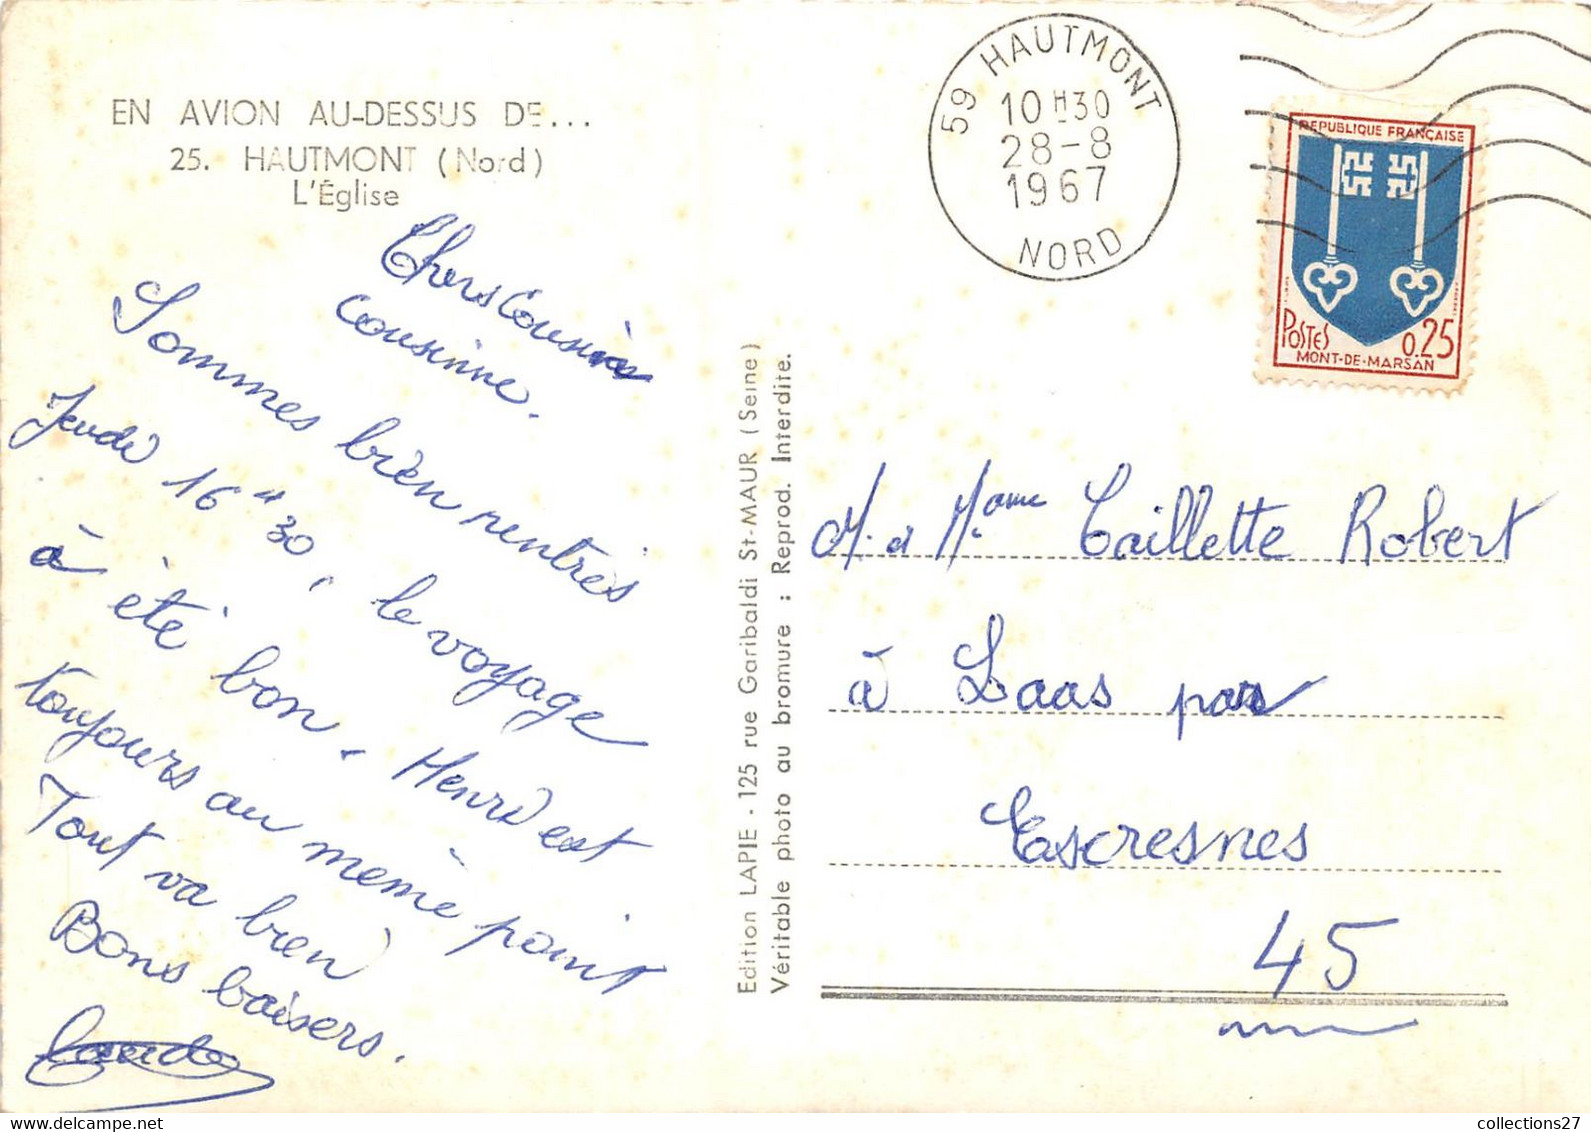 EN AVION AU-DESSUS DE...
25. HAUTMONT (Nord)
L'Église
Chers Cousins
Cousinne.
Sommes bien rentrés
Jeudi 16 H 30, le voyage
à été bon, Henri est
toujours au même point
Tout va bien
Bons baisers.
Edition LAPIE - 125 rue Garibaldi St-MAUR (Seine)
Véritable photo au bromure : Reprod. Interdite.
59 HAUTMONT
10 H30
28-8
1967
NORD
REPUBLIQUE FRANÇAISE
POSTES
0.25
MONT-DE-MARSAN
M. et Mame Caillette Robert
à Laas par
Escresnes
45
collections27